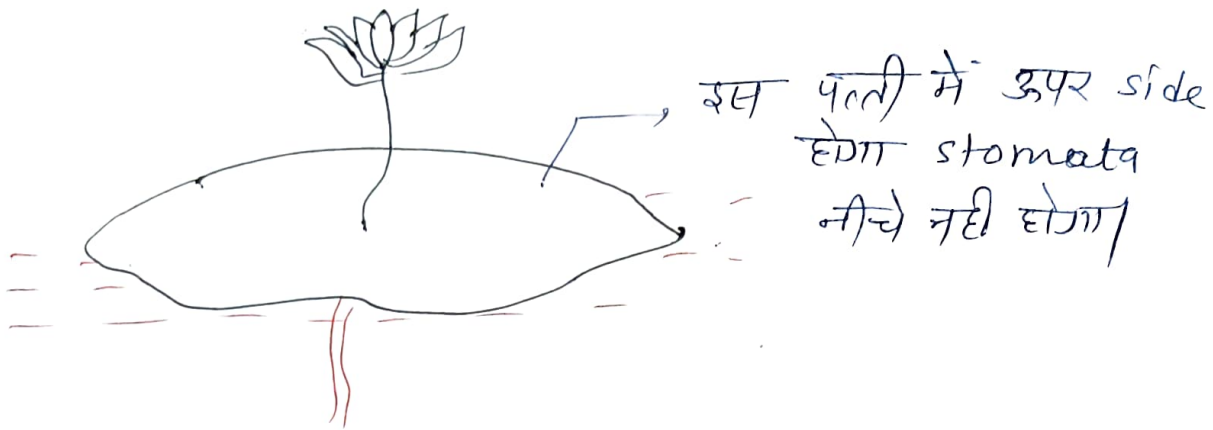 इस पत्ती में ऊपर side
होगा stomata
नीचे नही होगा।